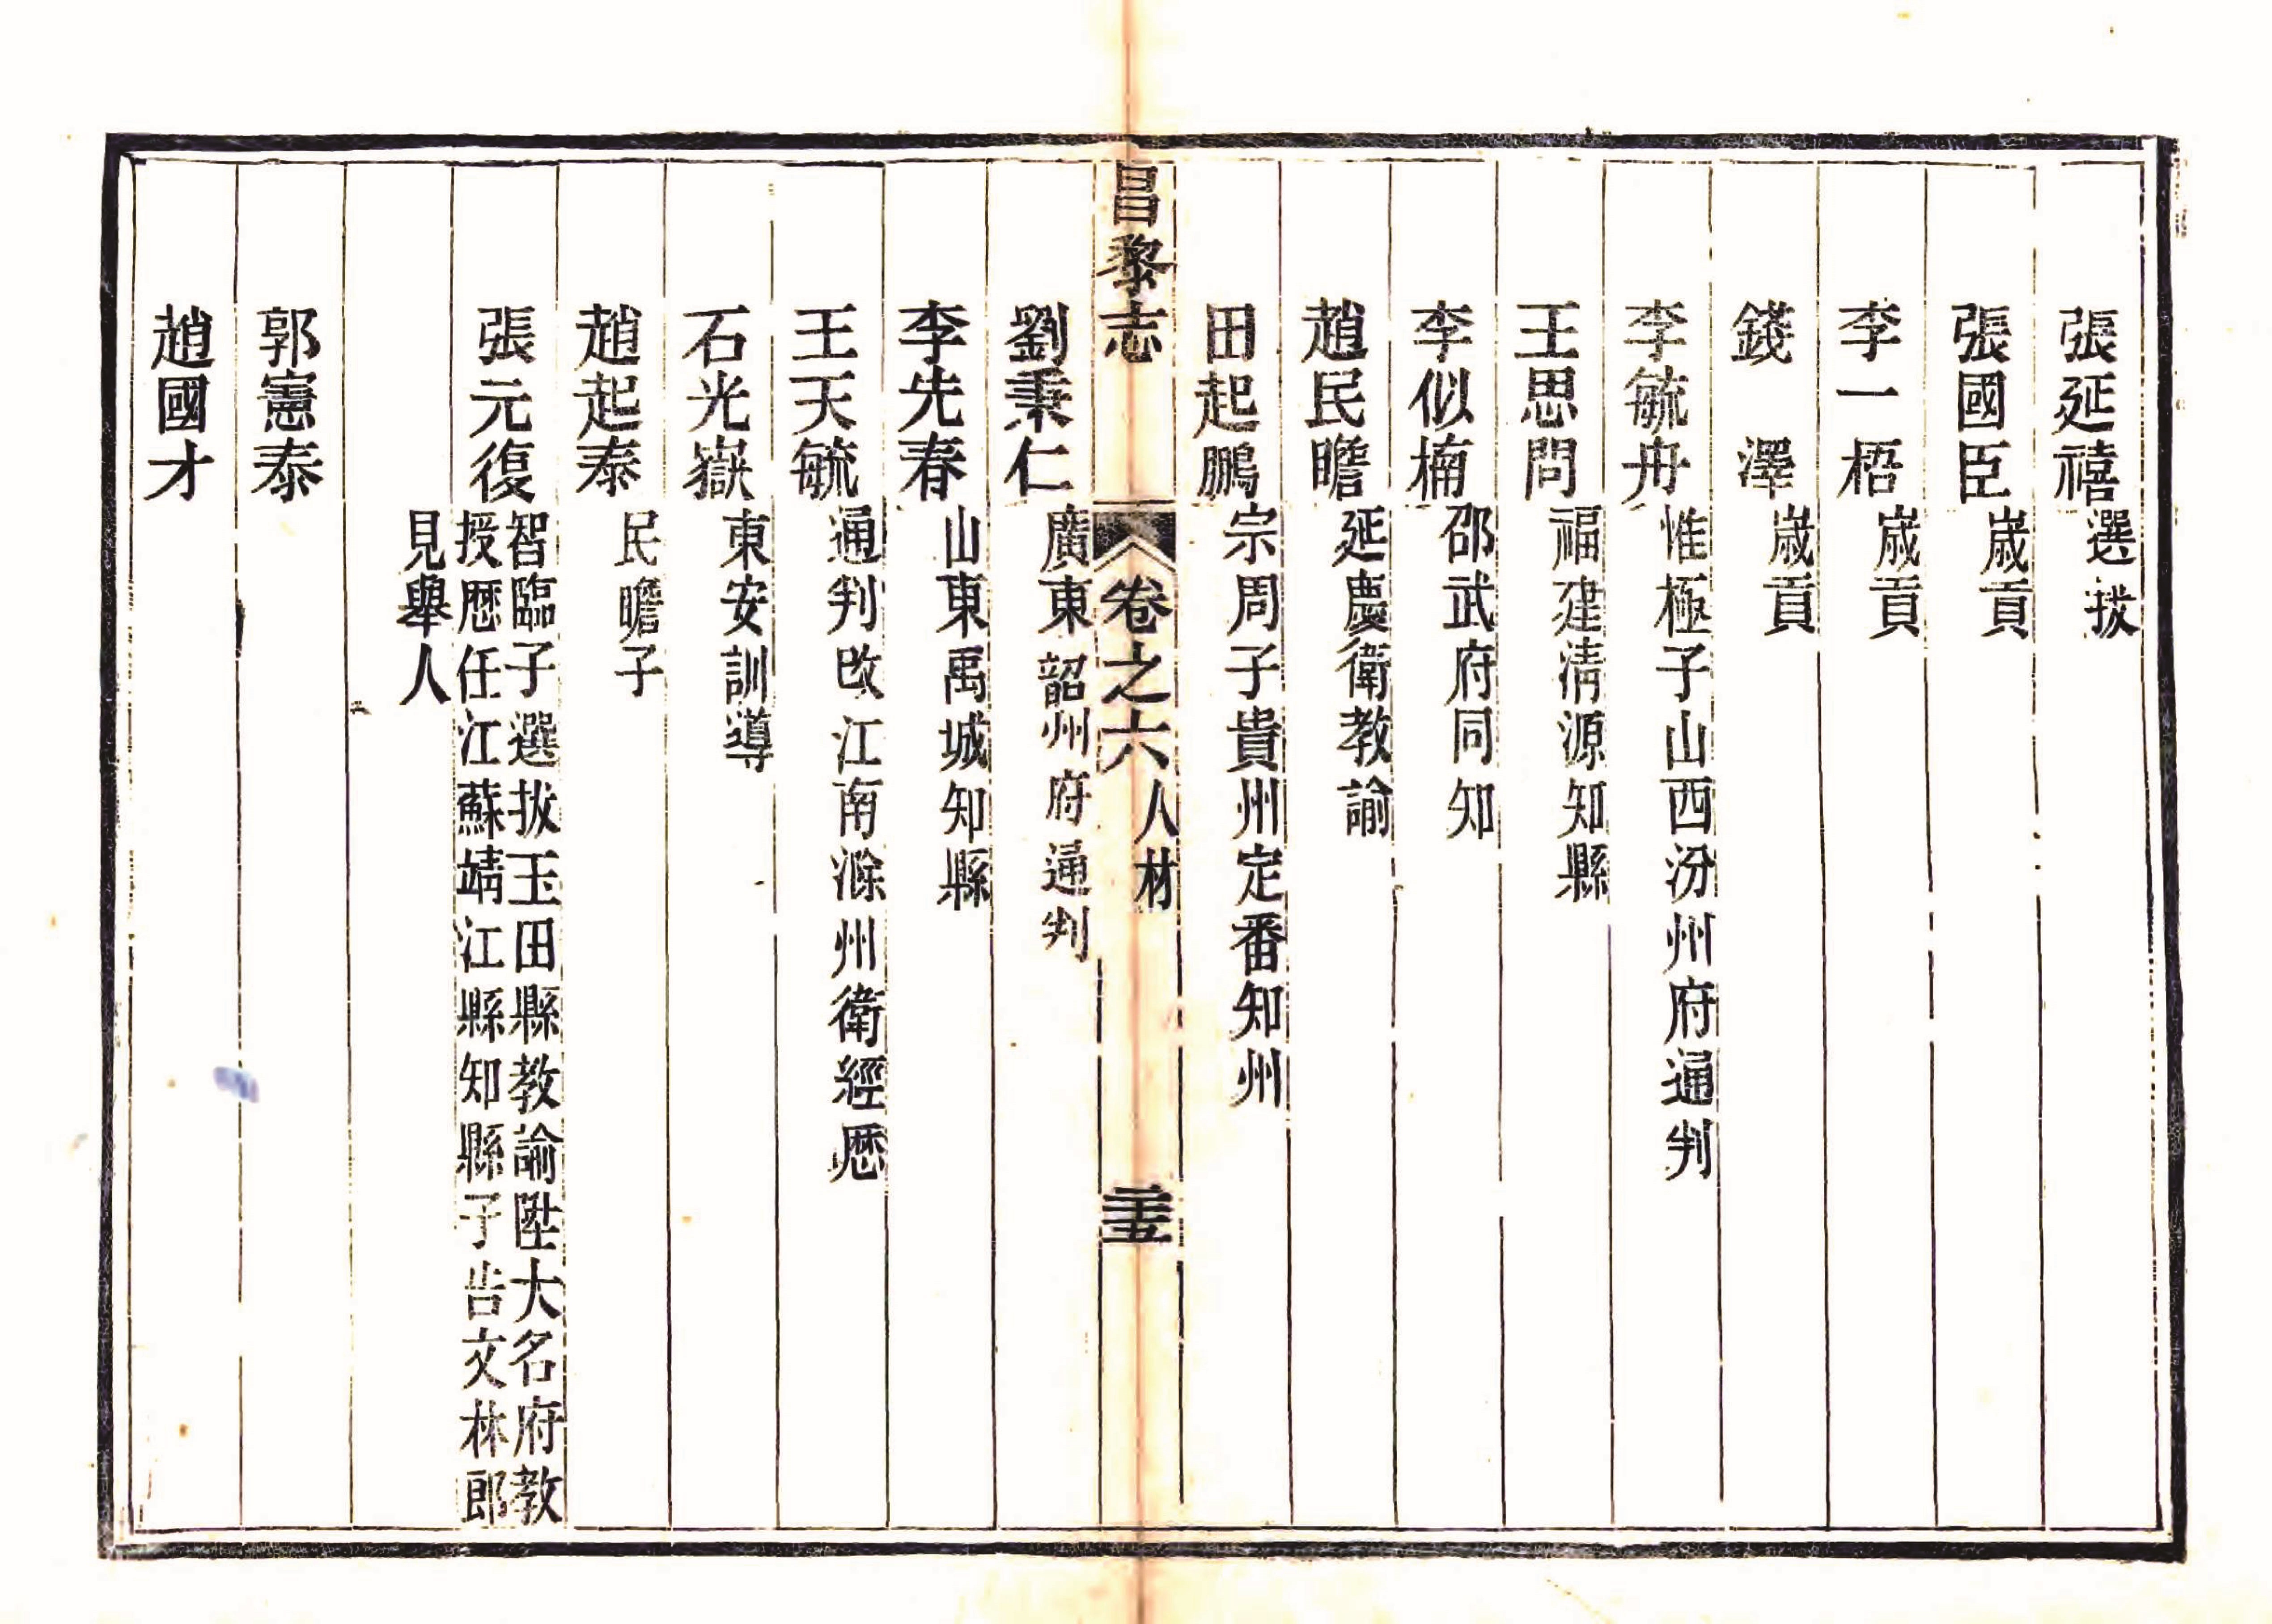 張延禧選拔
張國臣歲貢
李一梧歲貢
錢澤歲貢
李毓舟惟極子山西汾州府通判
王思問福建清源知縣
李似楠邵武府同知
趙民瞻延慶衛教諭
田起鵬宗周子貴州定番知州
昌黎志 卷之六人材 二十五
劉秉仁廣東韶州府通判
李先春山東禹城知縣
王天毓通判改江南滁州衛經歷
石光嶽東安訓導
趙起泰民瞻子
張元復智臨子選拔玉田縣教諭陞大名府教
授歷任江蘇靖江縣知縣子告文林郎
見舉人
郭憲泰
趙國才